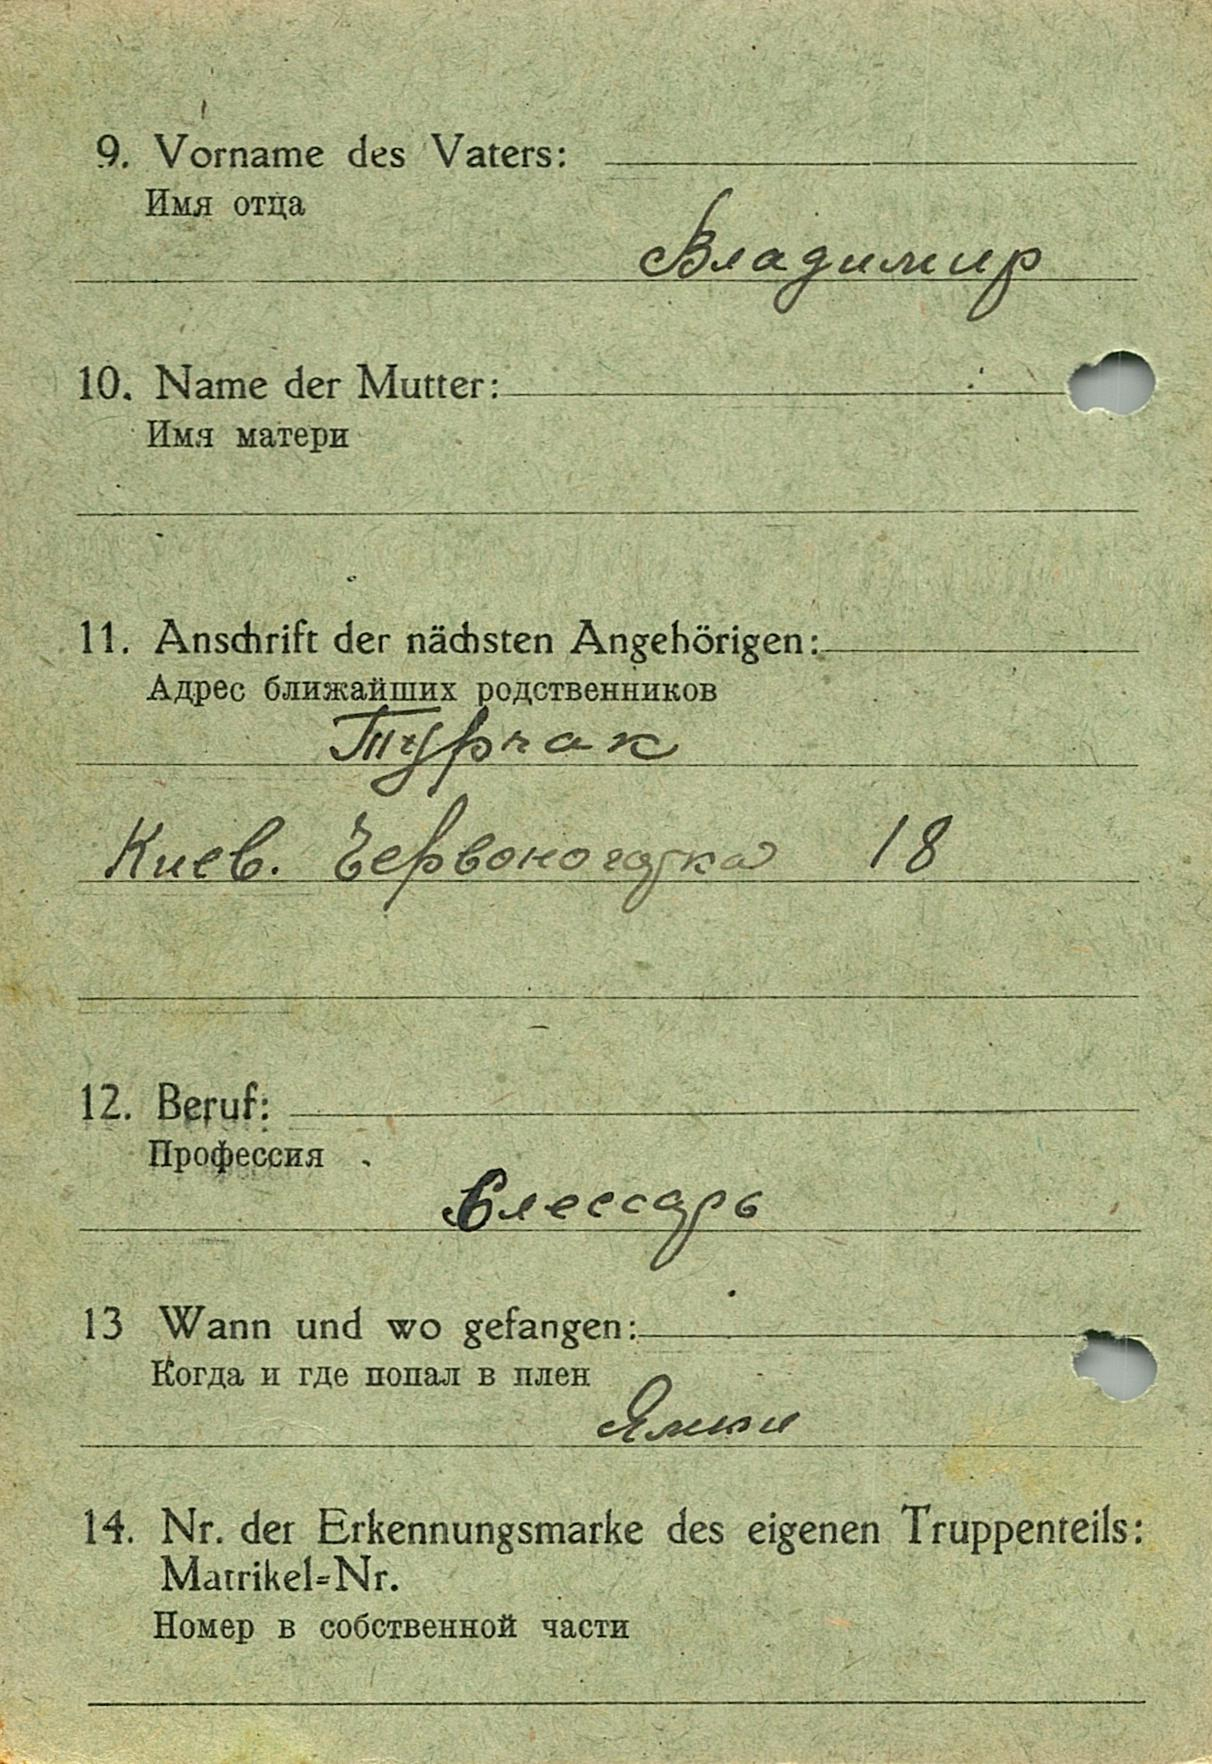 9. Vorname des Vaters:
Имя отца
Владимир
10. Name der Mutter:
Имя матери
11. Anschrift der nächsten Angehörigen:
Адрес ближайших родственников
Турчак
Киев. 18
12. Beruf:
Профессия
Слессарь
13 Wann und wo gefangen:
Когда и где попал в плен
14. Nr. der Erkennungsmarke des eigenen Truppenteils:
Matrikel=Nr.
Номер в собственной части